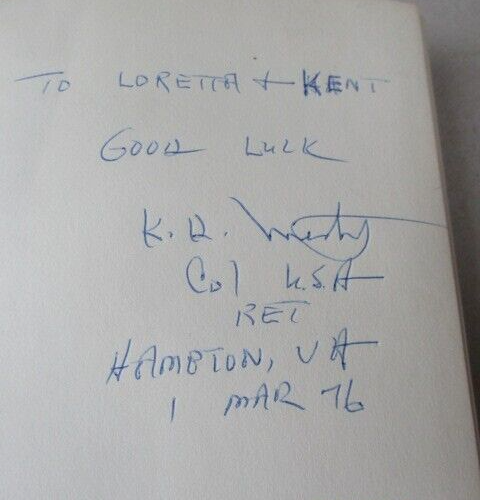 To LORETTA + KENT
GOOD LUCK
K. D.
Col U.S.A
RET
HAMPTON, VA
1 MAR 76